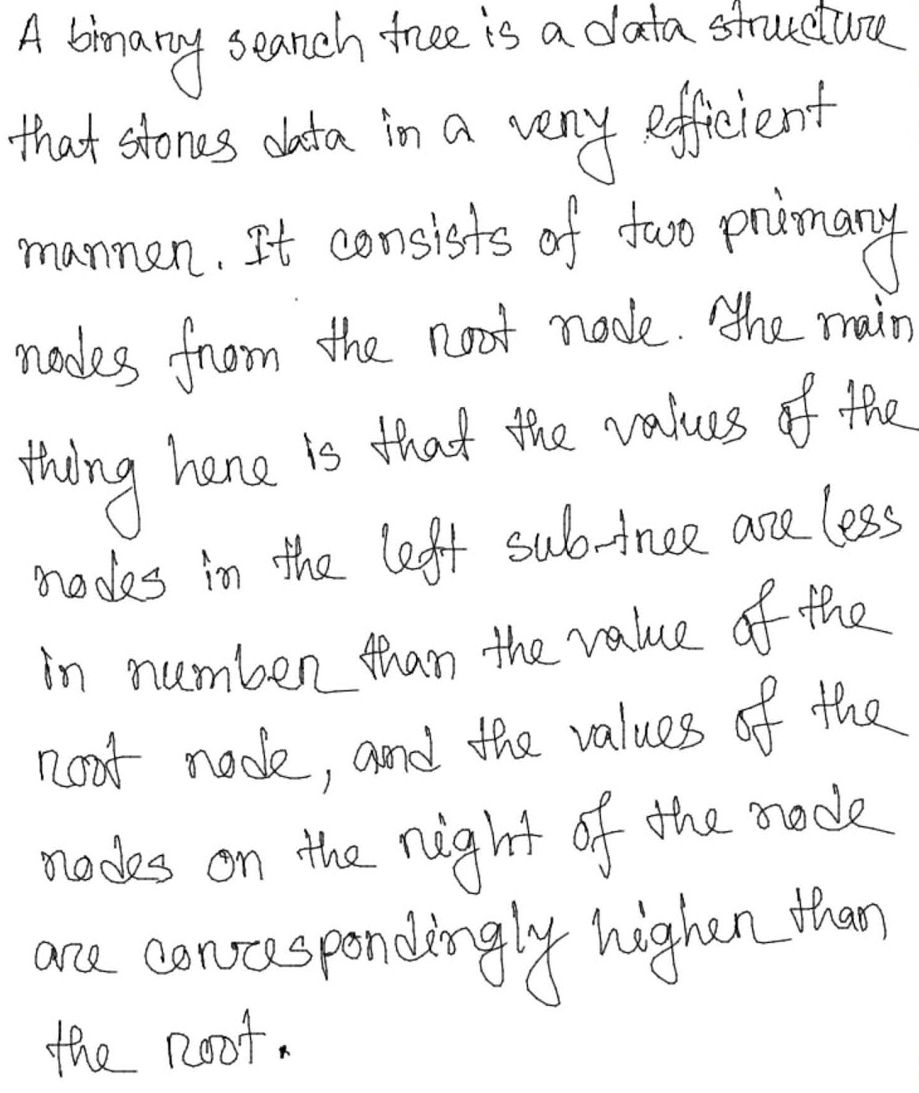 A binary search tree is a data structure
that stores data in a very efficient
manner. It consists of two primary
nodes from the root node. The main
thing here is that the values of the
nodes in the left sub-tree are less
in number than the value of the
root node, and the values of the
nodes on the right of the node
are correspondingly higher than
the root.